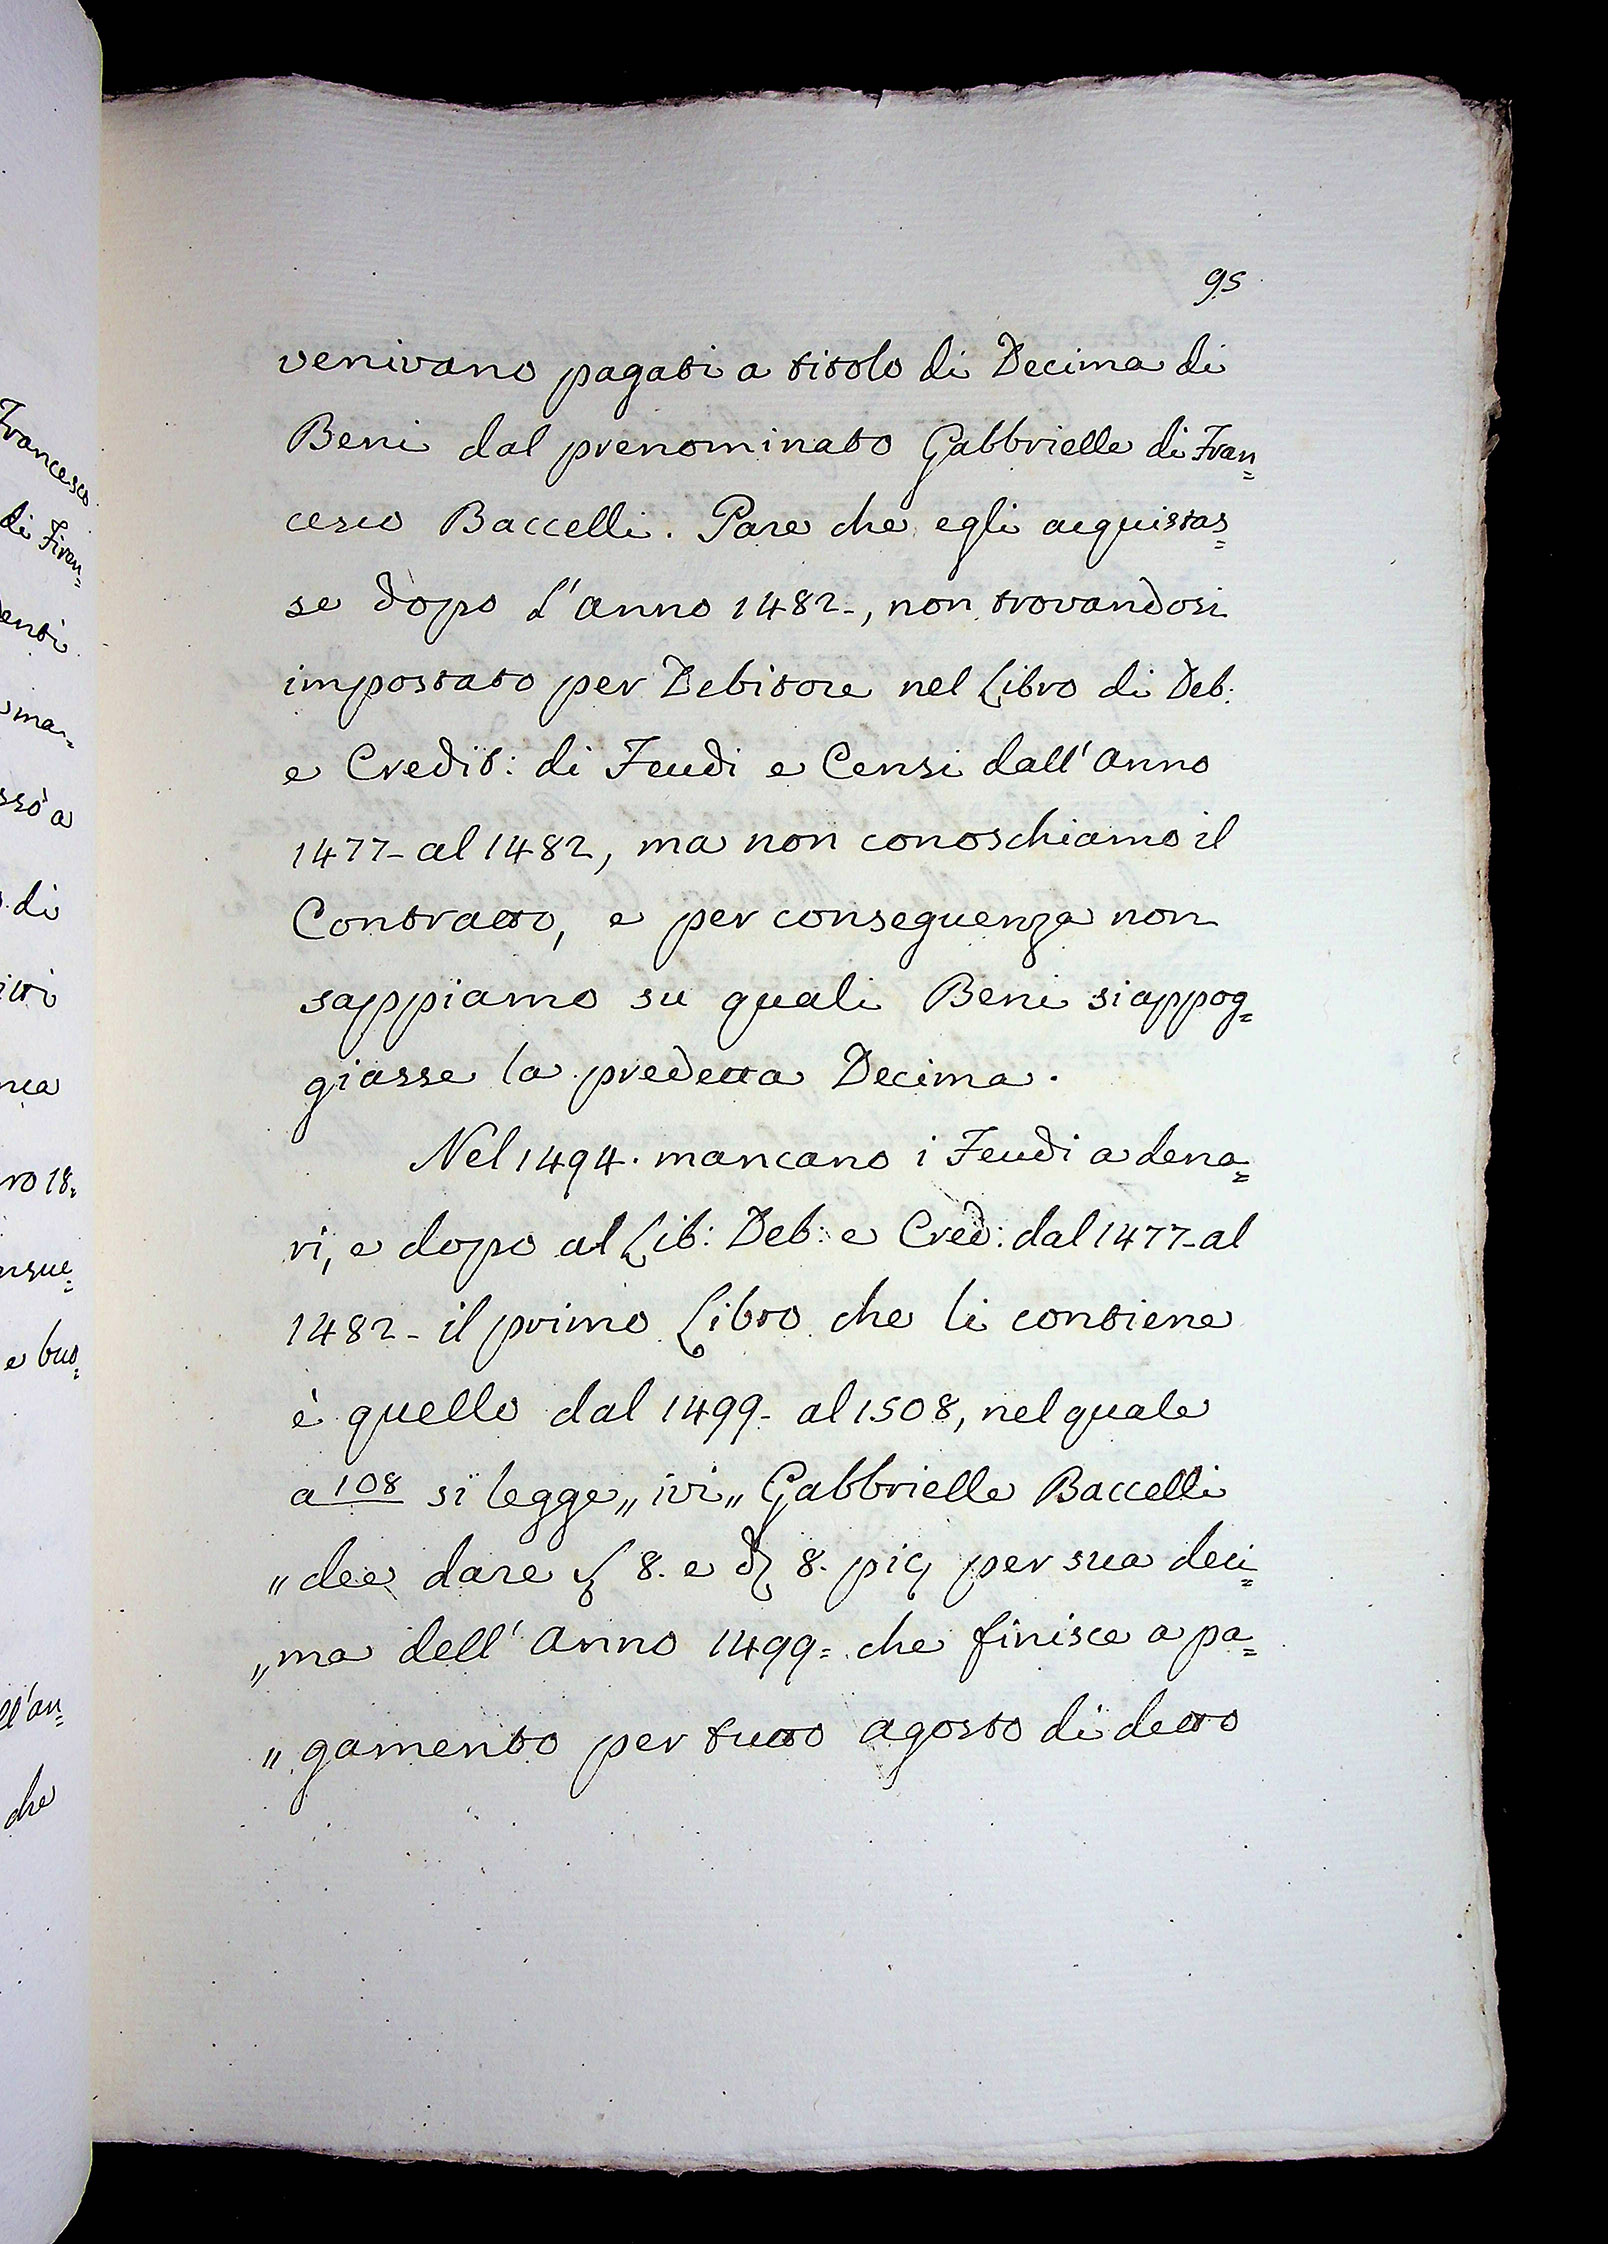 95
venivano pagati a titolo di Decima di
Beni dal prenominato Gabbrielle di Fran=
cesco Baccelli. Pare che egli acquistas=
se dopo l'anno 1482-, non trovandosi
impostato per Debitore nel Libro di Deb:
e Credit: di Feudi e Censi dall'anno
1477- al 1482, ma non conoschiamo il
Contratto, e per conseguenza non
sappiamo su quali Beni si appog=
giasse la predetta Decima.
Nel 1494. mancano i Feudi a dena=
ri, e dopo al Lib: Deb: e Cred: dal 1477- al
1482- il primo Libro che li contiene
è quello dal 1499- al 1508, nel quale
a 108 si legge „ ivi „ Gabbrielle Baccelli
„ dee dare 8. e 8. per sua deci=
„ ma dell'anno 1499= che finisce a pa=
„ gamento per tutto agosto di detto
Francesco
di Firen=
enti
ma=
ssò a
di
itti
nca
ro 18.
nsue=
e buo=
ll'an=
che